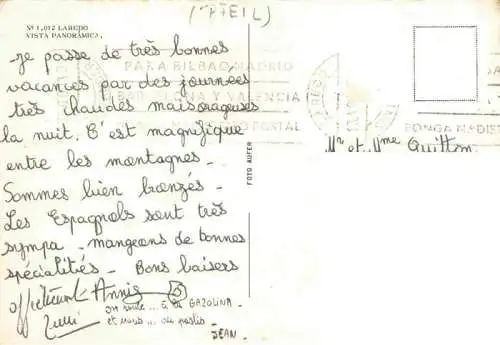 (PFEIL)
Nº 1,012 LAREDO
VISTA PANORÁMICA,
Je passe de très bonnes
vacances par des journées
très chaudes mais orageuses
la nuit. C'est magnifique
entre les montagnes -
Sommes bien bronzés -
Les Espagnols sont très
sympa - mangeons de bonnes
spécialités - Bons baisers
Annie
on roule ... à la GAZOLINA -
et nous ... au pastis -
JEAN -
FOTO AUFER
PARA BILBAO, MADRID
Y VALENCIA
POSTAL
PONGA
Mr et Mme Guitton